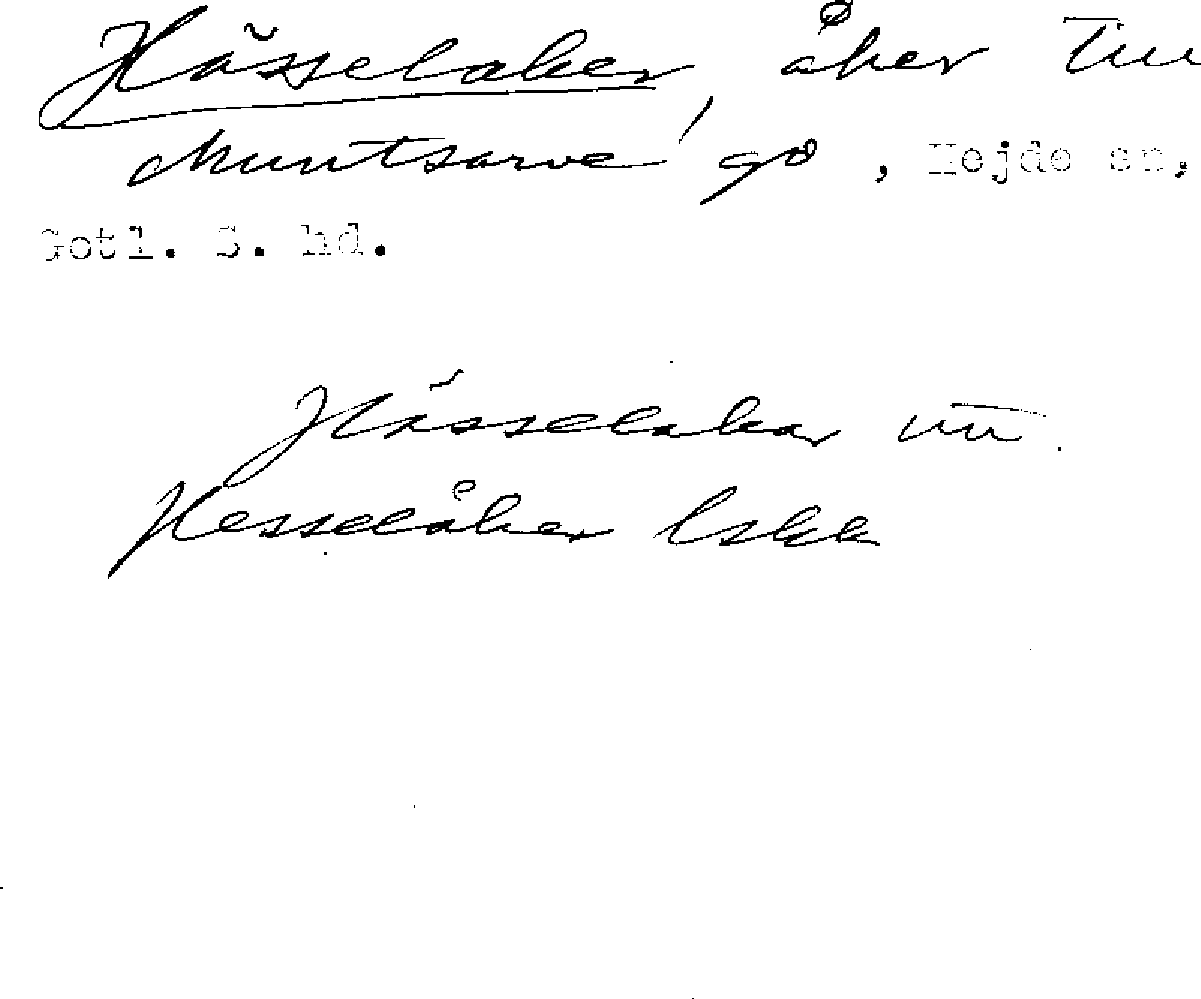 Hässelaker, åker till
Muntsarve gd, Hejde sn,
Gotl. S. hd.
Hässelakar
Hesselåker lskk